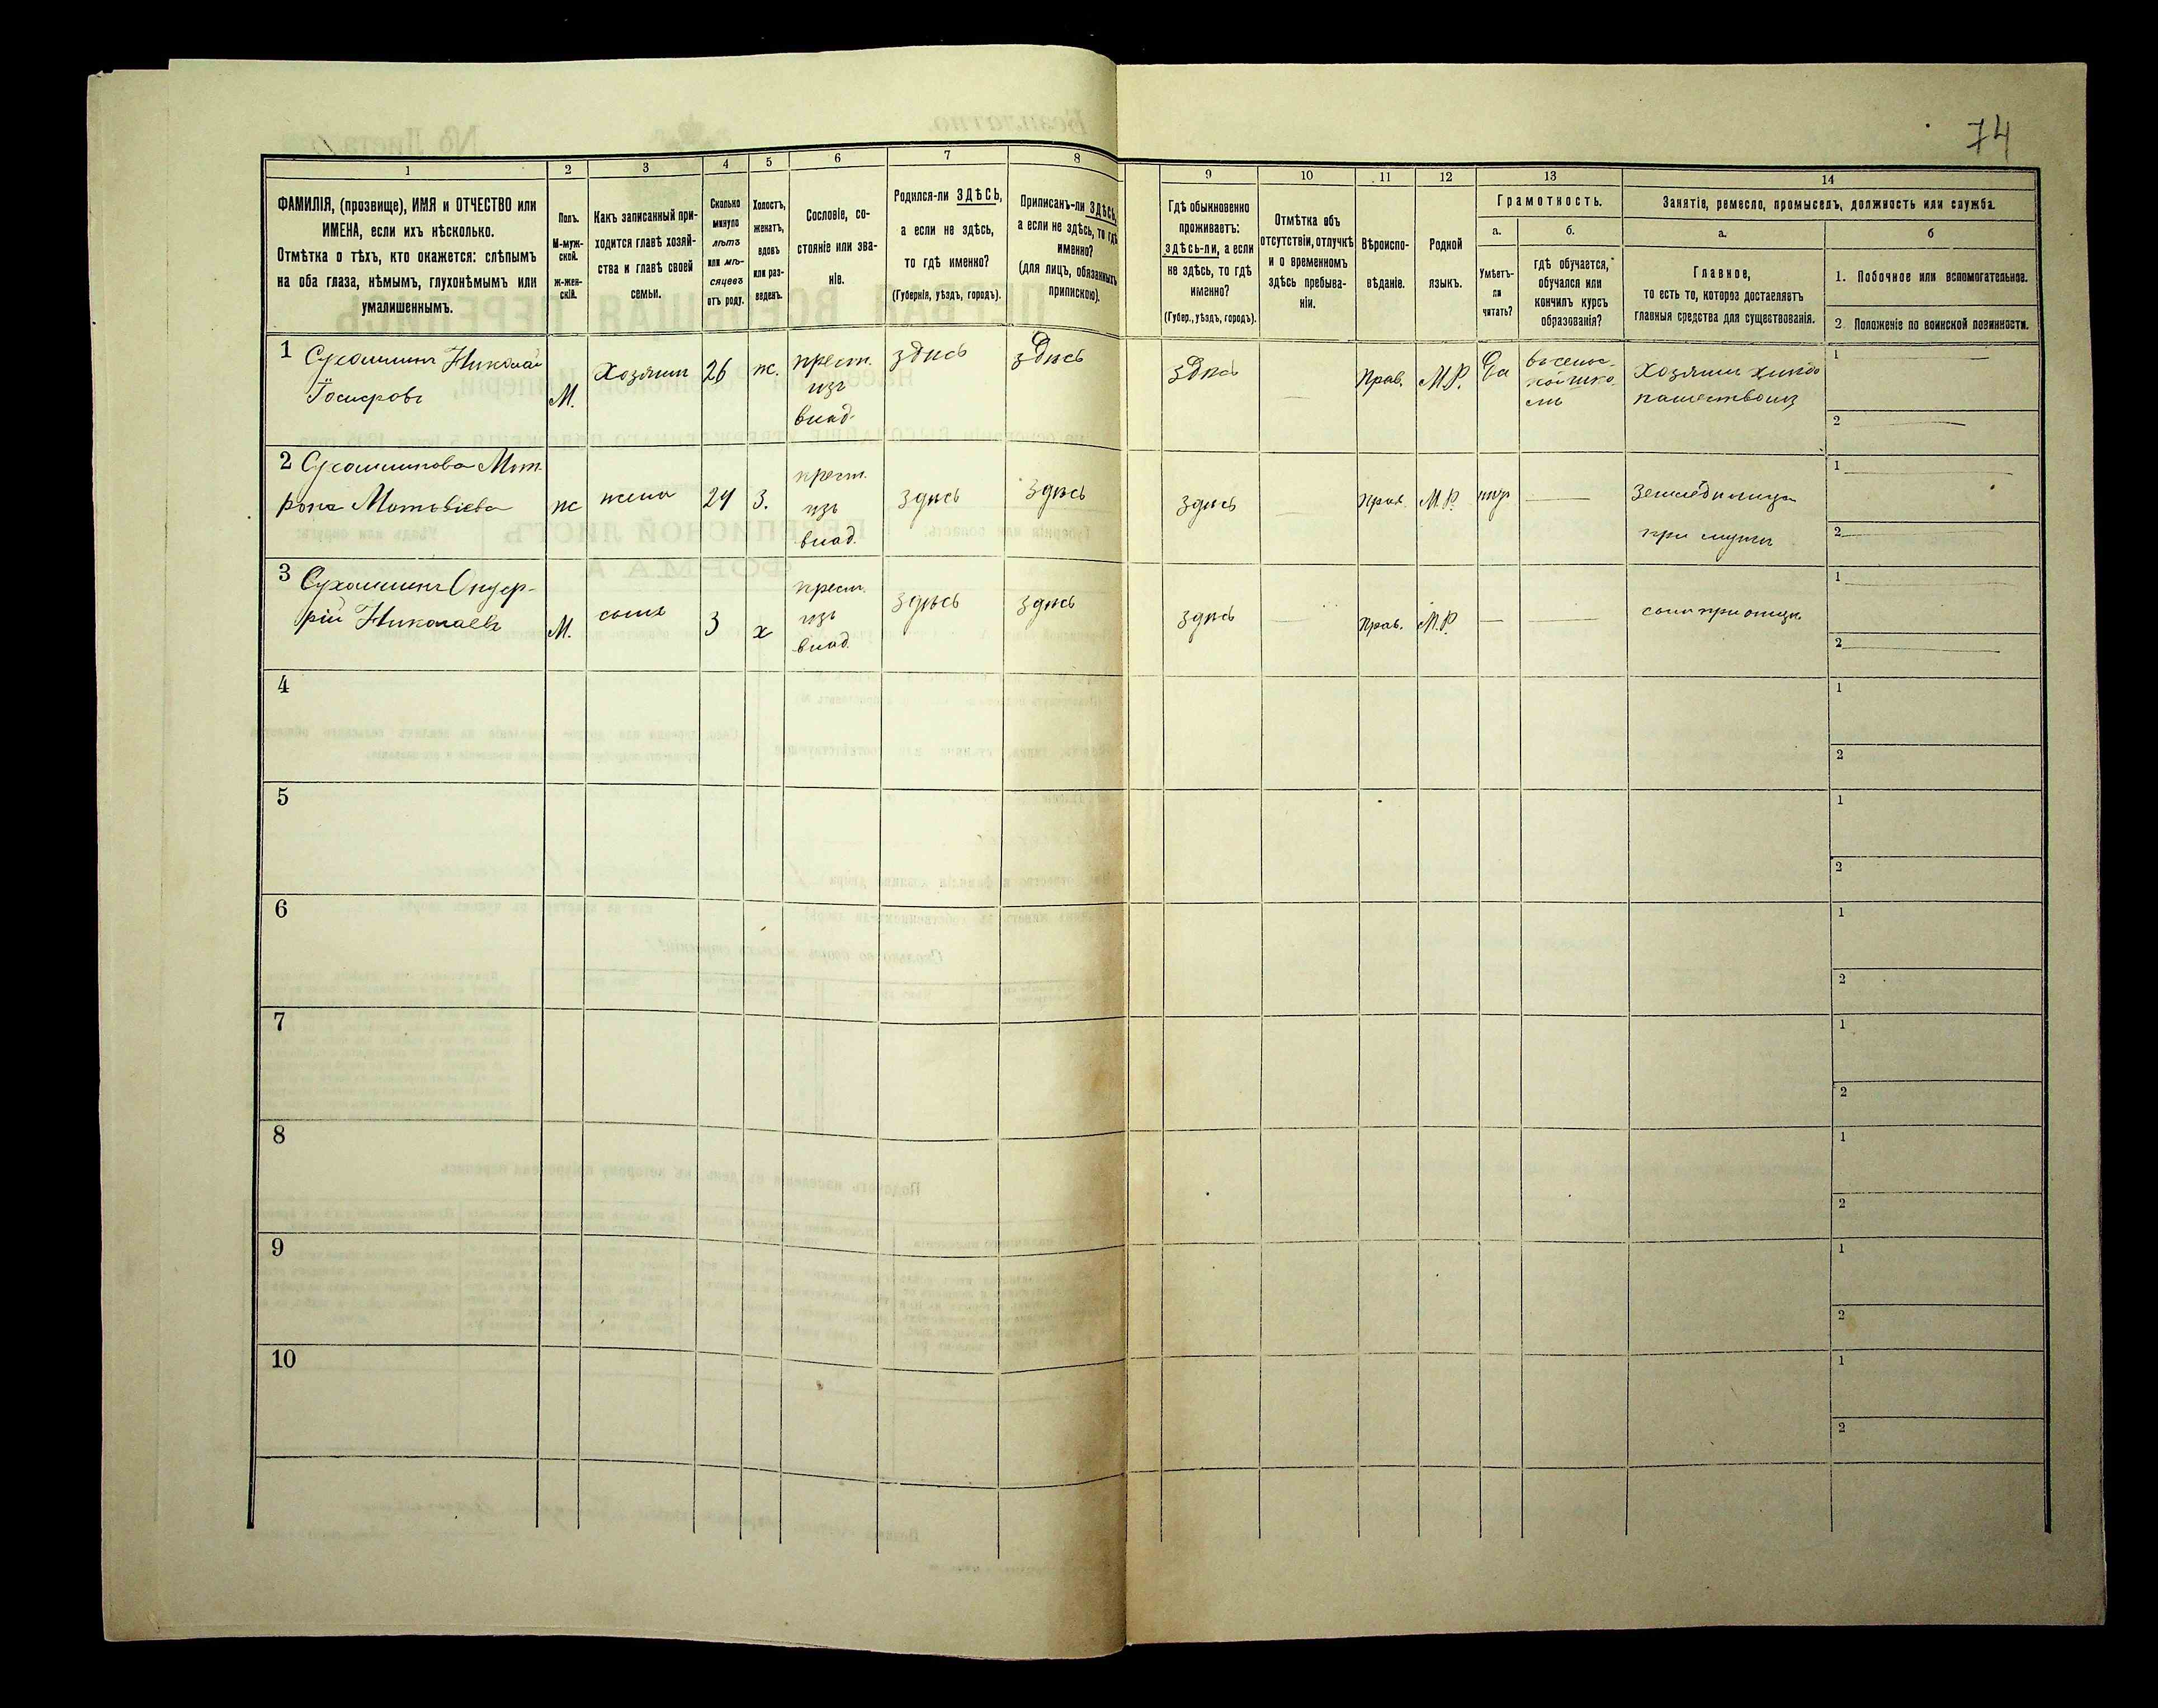 74
1
2
3
4
5
6
7
8
9
10
11
12
13
14
ФАМИЛІЯ, (прозвище), ИМЯ и ОТЧЕСТВО или
ИМЕНА, если ихъ нѣсколько.
Отмѣтка о тѣхъ, кто окажется: слѣпымъ
на оба глаза, нѣмымъ, глухонѣмымъ или
умалишеннымъ.
Полъ.
М-муж-
ской.
ж-жен-
скій.
Какъ записанный при-
ходится главѣ хозяй-
ства и главѣ своей
семьи.
Сколько
минуло
лѣтъ
или мѣ-
сяцевъ
отъ роду.
Холостъ,
женатъ,
вдовъ
или раз-
веденъ.
Сословіе, со-
стояніе или зва-
ніе.
Родился-ли ЗДѢСЬ,
а если не здѣсь,
то гдѣ именно?
(Губернія, уѣздъ, городъ).
Приписанъ-ли ЗДѢСЬ,
а если не здѣсь, то гдѣ
именно?
(для лицъ, обязанныхъ
припискою).
Гдѣ обыкновенно
проживаетъ:
здѣсь-ли, а если
не здѣсь, то гдѣ
именно?
(Губер., уѣздъ, городъ).
Отмѣтка объ
отсутствіи, отлучкѣ
и о временномъ
здѣсь пребыва-
ніи.
Вѣроиспо-
вѣданіе.
Родной
языкъ.
Грамотность.
а.
Умѣетъ-
ли
читать?
б.
гдѣ обучается,
обучался или
кончилъ курсъ
образованія?
Занятіе, ремесло, промыселъ, должность или служба.
а.
Главное,
то есть то, которое доставляетъ
главныя средства для существованія.
б
1. Побочное или вспомогательное.
2. Положеніе по воинской повинности.
1
Николай
М.
Хозяинъ
26
ж.
крест.
изъ
влад.
здѣсь
здѣсь
здѣсь
Прав.
М.Р.
Да
Хозяинъ
1
2
2
Мот
рона
ж
жена
24
З.
крест.
изъ
влад.
здѣсь
здѣсь
здѣсь
Прав.
М.Р.
при мужѣ
1
2
3
Николаевъ
М.
сынъ
3
х
крест.
изъ
влад.
здѣсь
здѣсь
здѣсь
Прав.
М.Р.
сынъ при отцѣ
1
2
4
1
2
5
1
2
6
1
2
7
1
2
8
1
2
9
1
2
10
1
2